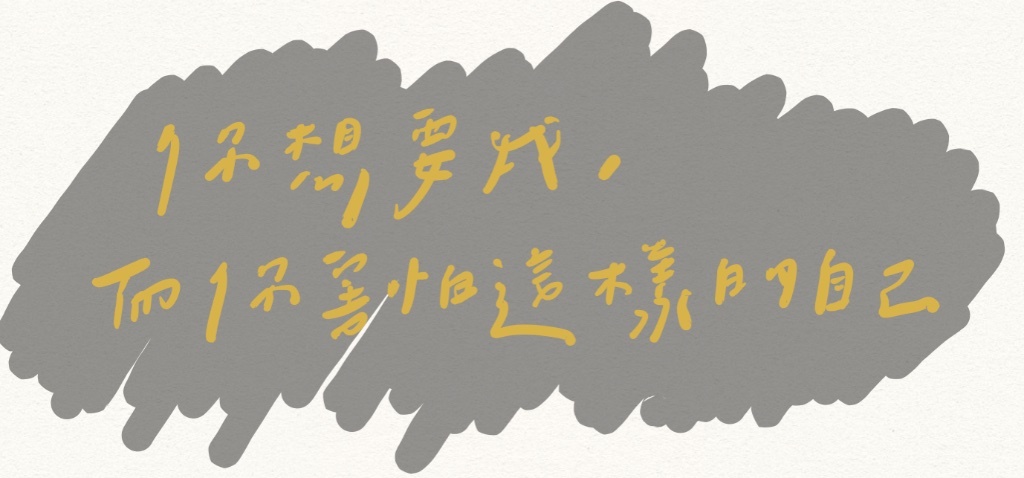 你想要我,
而你害怕這樣的自己